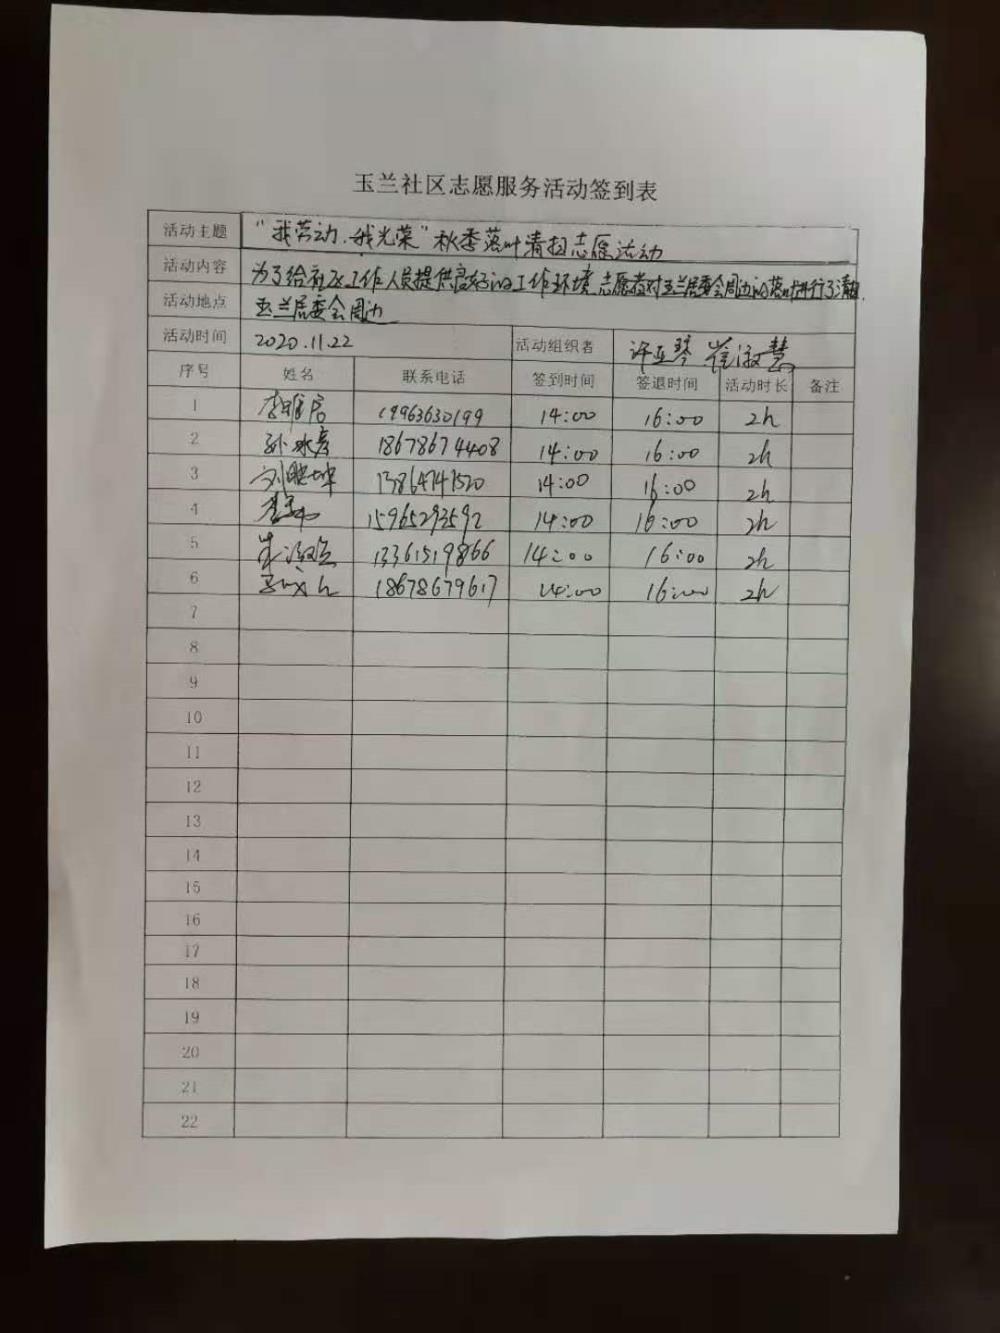 玉兰社区志愿服务活动签到表
活动主题 "我劳动、我光荣"秋季落叶清扫志愿活动
活动内容 为了给社区工作人员提供良好的工作环境,志愿者对玉兰居委会周边的落叶进行了清扫.
活动地点 玉兰居委会周边
活动时间 2020.11.22 活动组织者 许亚琴 崔淑慧
序号 姓名 联系电话 签到时间 签退时间 活动时长 备注
1 19963630199 14:00 16:00 2h
2 孙冰彦 18678674408 14:00 16:00 2h
3 刘鹏坤 13864741520 14:00 16:00 2h
4 15965293592 14:00 16:00 2h
5 13361519866 14:00 16:00 2h
6 18678679617 14:00 16:00 2h
7
8
9
10
11
12
13
14
15
16
17
18
19
20
21
22